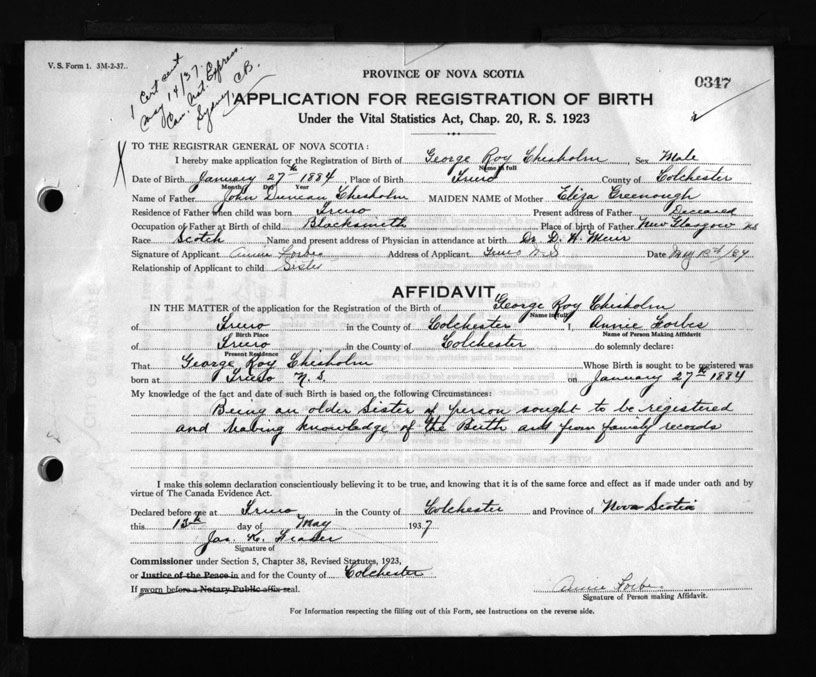 V. S. Form 1. 3M-2-37.
1 Cert sent
May 14/37.
Can. Nat. Express
Sydney C.B.
PROVINCE OF NOVA SCOTIA
0347
APPLICATION FOR REGISTRATION OF BIRTH
Under the Vital Statistics Act, Chap. 20, R. S. 1923
TO THE REGISTRAR GENERAL OF NOVA SCOTIA:
I hereby make application for the Registration of Birth of George Roy Chisholm, Sex Male
Name in full
Date of Birth January 27th 1884, Place of Birth Truro County of Colchester
Month Day Year
Name of Father John Duncan Chisholm MAIDEN NAME of Mother Eliza Greenough
Residence of Father when child was born Truro Present address of Father Deceased
Occupation of Father at Birth of child Blacksmith Place of birth of Father New Glasgow N.S
Race Scotch Name and present address of Physician in attendance at birth Dr. D. H. Muir
Signature of Applicant Annie Forbes Address of Applicant Truro N.S Date May 13th/37
Relationship of Applicant to child Sister
AFFIDAVIT
IN THE MATTER of the application for the Registration of the Birth of George Roy Chisholm
Name in full
of Truro in the County of Colchester I, Annie Forbes
Birth Place Name of Person Making Affidavit
of Truro in the County of Colchester do solemnly declare:
Present Residence
That George Roy Chisholm Whose Birth is sought to be registered was
born at Truro N.S. on January 27th 1884
My knowledge of the fact and date of such Birth is based on the following Circumstances:
Being an older Sister of person sought to be registered
and having knowledge of the Birth and from family records
I make this solemn declaration conscientiously believing it to be true, and knowing that it is of the same force and effect as if made under oath and by
virtue of The Canada Evidence Act.
Declared before me at Truro in the County of Colchester and Province of Nova Scotia
this 13th day of May 1937
Jas. K. Fraser
Signature of
Commissioner under Section 5, Chapter 38, Revised Statutes, 1923,
or Justice of the Peace in and for the County of Colchester
If sworn before a Notary Public affix seal.
Annie Forbes
Signature of Person making Affidavit.
For Information respecting the filling out of this Form, see Instructions on the reverse side.